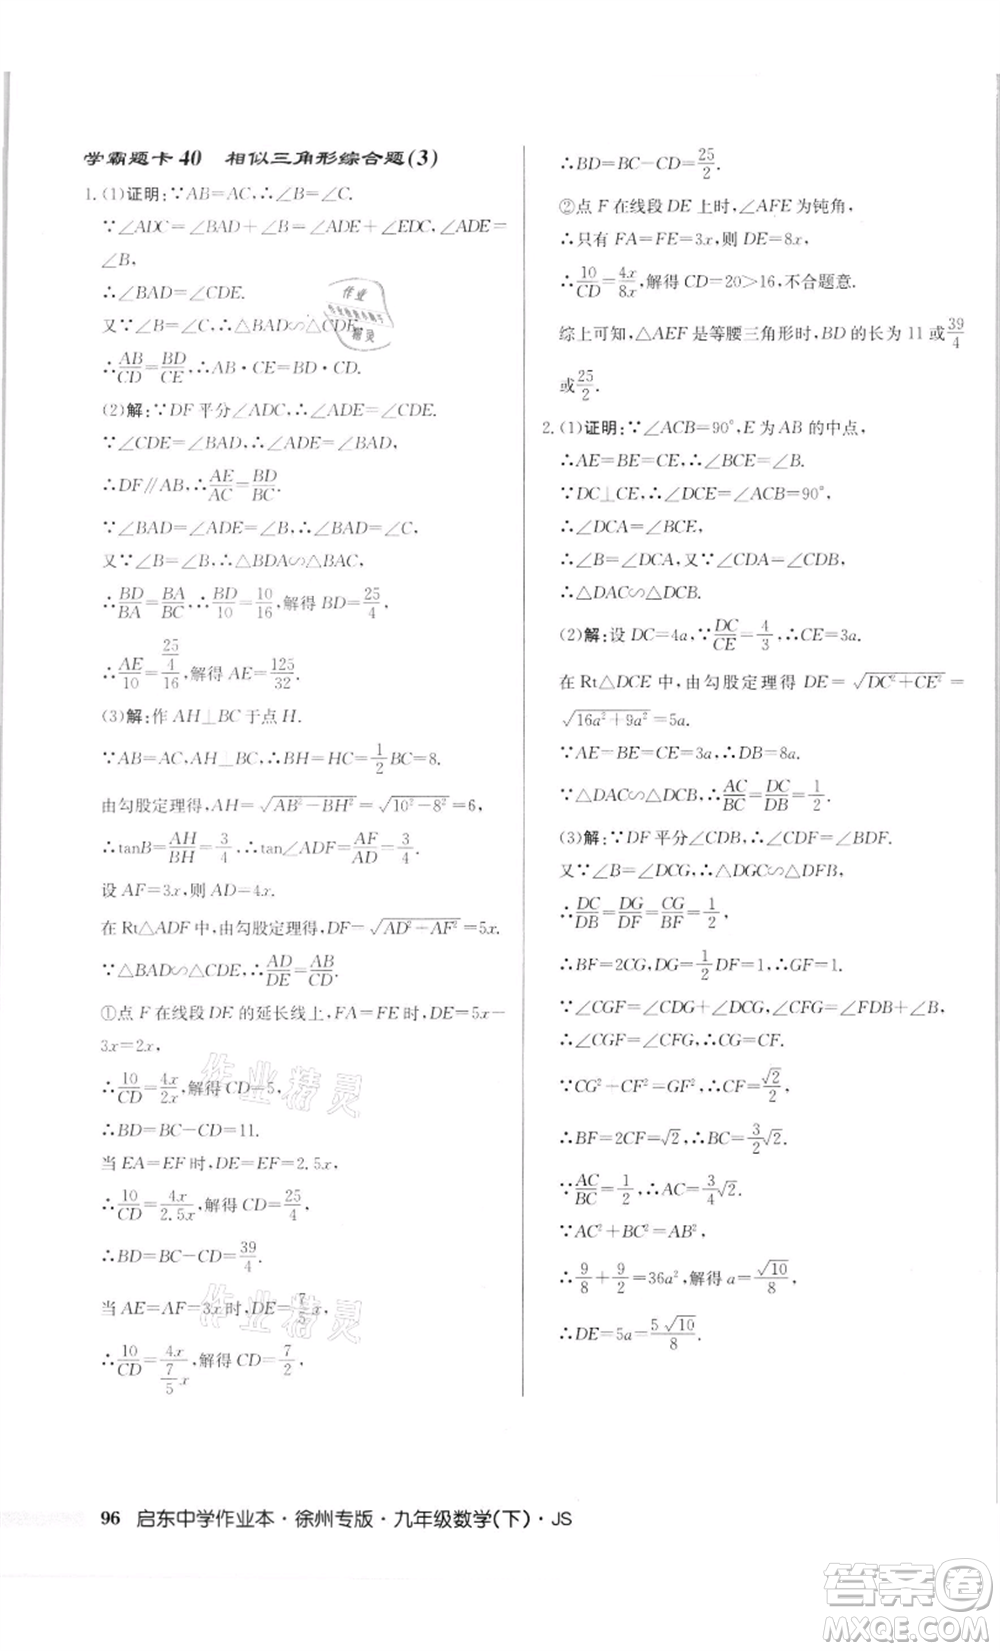 学霸题卡 40 相似三角形综合题(3)
1. (1)证明:∵AB=AC,∴∠B=∠C.
∵∠ADC=∠BAD+∠B=∠ADE+∠EDC,∠ADE=
∠B,
∴∠BAD=∠CDE.
又∵∠B=∠C,∴△BAD∽△CDE,
∴AB/CD=BD/CE,∴AB·CE=BD·CD.
(2)解:∵DF平分∠ADC,∴∠ADE=∠CDE.
∵∠CDE=∠BAD,∴∠ADE=∠BAD,
∴DF∥AB,∴AE/AC=BD/BC.
∵∠BAD=∠ADE=∠B=∠C,∴∠BAD=∠C,
又∵∠B=∠B,∴△BDA∽△BAC,
∴BD/BA=BA/BC,∴BD/10=10/16,解得 BD=25/4,
∴AE/10=(25/4)/16,解得 AE=125/32.
(3)解:作 AH⊥BC于点 H.
∵AB=AC,AH⊥BC,∴BH=CH=1/2BC=8.
由勾股定理得,AH=√(AB²-BH²)=√(10²-8²)=6,
∴tanB=AH/BH=3/4,∴tan∠ADF=AF/AD=3/4.
设 AF=3x,则 AD=4x.
在 Rt△ADF中,由勾股定理得,DF=√(AD²+AF²)=5x.
∵△BAD∽△CDE,∴AD/DE=AB/CD.
①点 F在线段 DE的延长线上,FA=FE时,DE=5x-
3x=2x,
∴10/CD=4x/2x,解得 CD=5,
∴BD=BC-CD=11.
当 EA=EF时,DE=EF=2.5x,
∴10/CD=4x/2.5x,解得 CD=25/4,
∴BD=BC-CD=39/4.
当 AE=AF=3x时,DE=7/5x,
∴10/CD=4x/(7/5x),解得 CD=7/2,
∴BD=BC-CD=25/2.
②点 F在线段 DE上时,∠AFE为钝角,
∴只有 FA=FE=3x,则 DE=8x,
∴10/CD=4x/8x,解得 CD=20>16,不合题意.
综上可知,△AEF是等腰三角形时,BD的长为 11 或39/4
或25/2.
2. (1)证明:∵∠ACB=90°,E为 AB的中点,
∴AE=BE=CE,∴∠BCE=∠B.
∵DC⊥CE,∴∠DCE=∠ACB=90°,
∴∠DCA=∠BCE,
∴∠B=∠DCA,又∵∠CDA=∠CDB,
∴△DAC∽△DCB.
(2)解:设 DC=4a,∵DC/CE=4/3,∴CE=3a.
在 Rt△DCE中,由勾股定理得 DE=√(DC²+CE²)=
√(16a²+9a²)=5a.
∵AE=BE=CE=3a,∴DB=8a.
∵△DAC∽△DCB,∴AC/BC=DC/DB=1/2.
(3)解:∵DF平分∠CDB,∴∠CDF=∠BDF.
又∵∠B=∠DCG,∴△DGC∽△DFB,
∴DC/DB=DG/DF=CG/BF=1/2,
∴BF=2CG,DG=1/2DF=1,∴GF=1.
∵∠CGF=∠CDG+∠DCG,∠CFG=∠FDB+∠B,
∴∠CGF=∠CFG,∴CG=CF.
∵CG²+CF²=GF²,∴CF=√2/2,
∴BF=2CF=√2,∴BC=3/2√2.
∵AC/BC=1/2,∴AC=3/4√2.
∵AC²+BC²=AB²,
∴9/8+9/2=36a²,解得 a=√10/8,
∴DE=5a=5√10/8.
96 启东中学作业本·徐州专版·九年级数学(下)·JS
作业精灵
作业精灵
作业精灵
答案卷
MXQE.COM